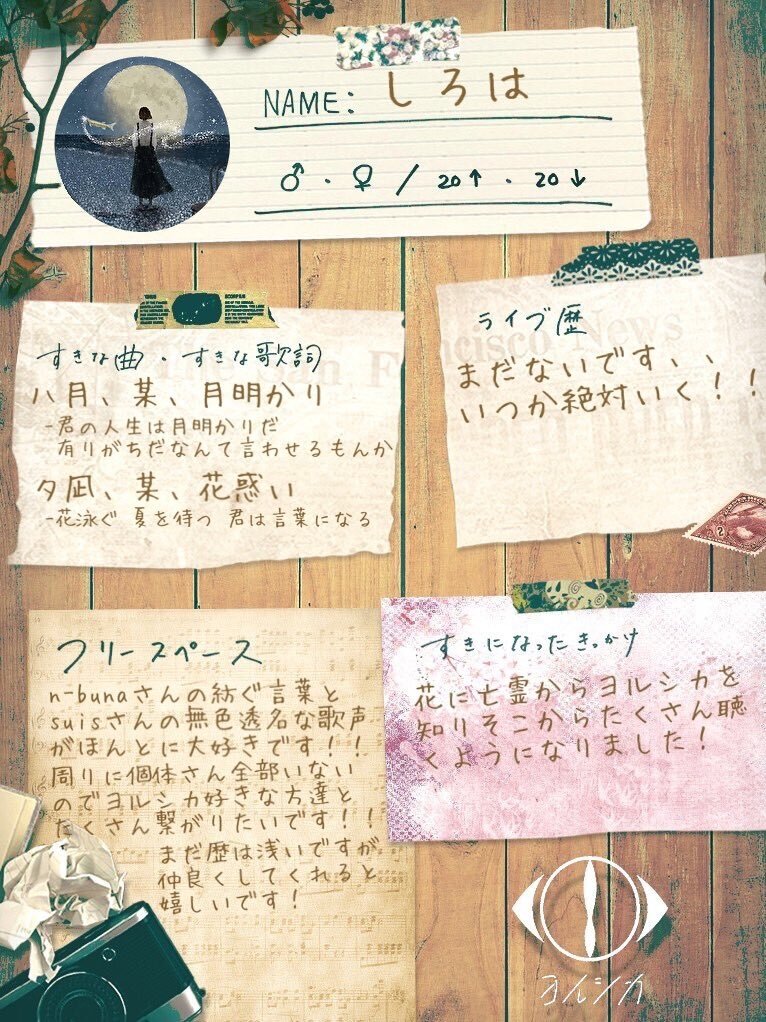 NAME: しろは
♂・♀ / 20↑・20↓
すきな曲・すきな歌詞
八月、某、月明かり
-君の人生は月明かりだ
有りがちだなんて言わせるもんか
夕凪、某、花惑い
-花泳ぐ 夏を待つ 君は言葉になる
ライブ歴
まだないです、、
いつか絶対いく！！
フリースペース
n-bunaさんの紡ぐ言葉と
suisさんの無色透名な歌声
がほんとに大好きです！！
周りに個体さん全部いない
のでヨルシカ好きな方達と
たくさん繋がりたいです！！
まだ歴は浅いですが
仲良くしてくれると
嬉しいです！
すきになったきっかけ
花に亡霊からヨルシカを
知りそこからたくさん聴
くようになりました！
ヨルシカ